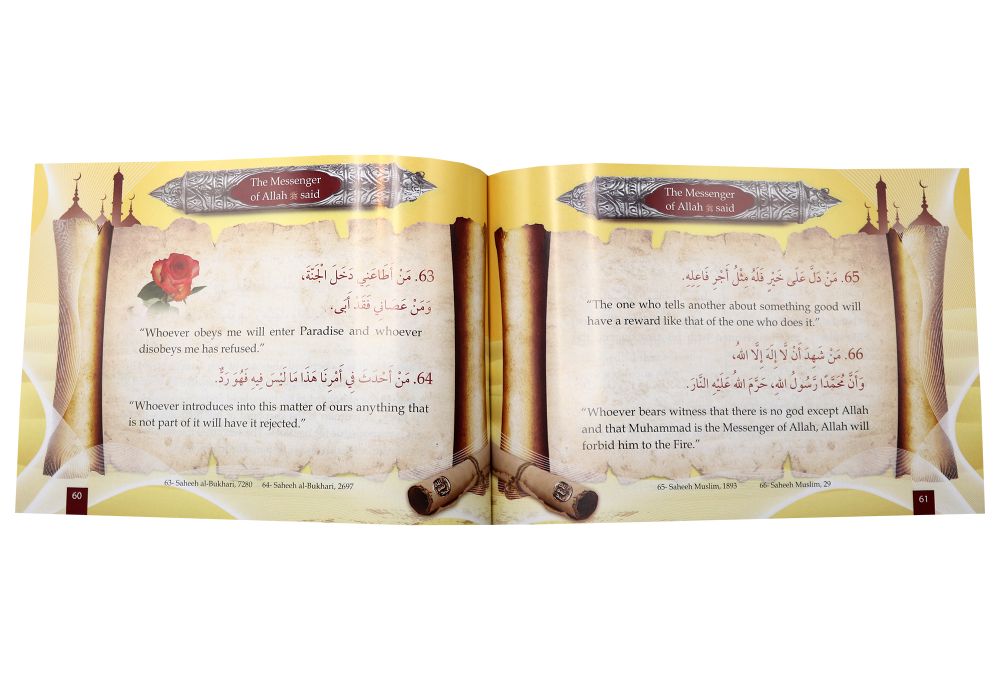 The Messenger
of Allah ﷺ said
63. مَنْ أَطَاعَنِي دَخَلَ الْجَنَّةَ،
وَمَنْ عَصَانِي فَقَدْ أَبَى.
“Whoever obeys me will enter Paradise and whoever
disobeys me has refused.”
64. مَنْ أَحْدَثَ فِي أَمْرِنَا هَذَا مَا لَيْسَ فِيهِ فَهُوَ رَدٌّ.
“Whoever introduces into this matter of ours anything that
is not part of it will have it rejected.”
63- Saheeh al-Bukhari, 7280 64- Saheeh al-Bukhari, 2697
60
The Messenger
of Allah ﷺ said
65. مَنْ دَلَّ عَلَى خَيْرٍ فَلَهُ مِثْلُ أَجْرِ فَاعِلِهِ.
“The one who tells another about something good will
have a reward like that of the one who does it.”
66. مَنْ شَهِدَ أَنْ لَّا إِلَهَ إِلَّا اللهُ،
وَأَنَّ مُحَمَّدًا رَّسُولُ اللهِ، حَرَّمَ اللهُ عَلَيْهِ النَّارَ.
“Whoever bears witness that there is no god except Allah
and that Muhammad is the Messenger of Allah, Allah will
forbid him to the Fire.”
65- Saheeh Muslim, 1893 66- Saheeh Muslim, 29
61